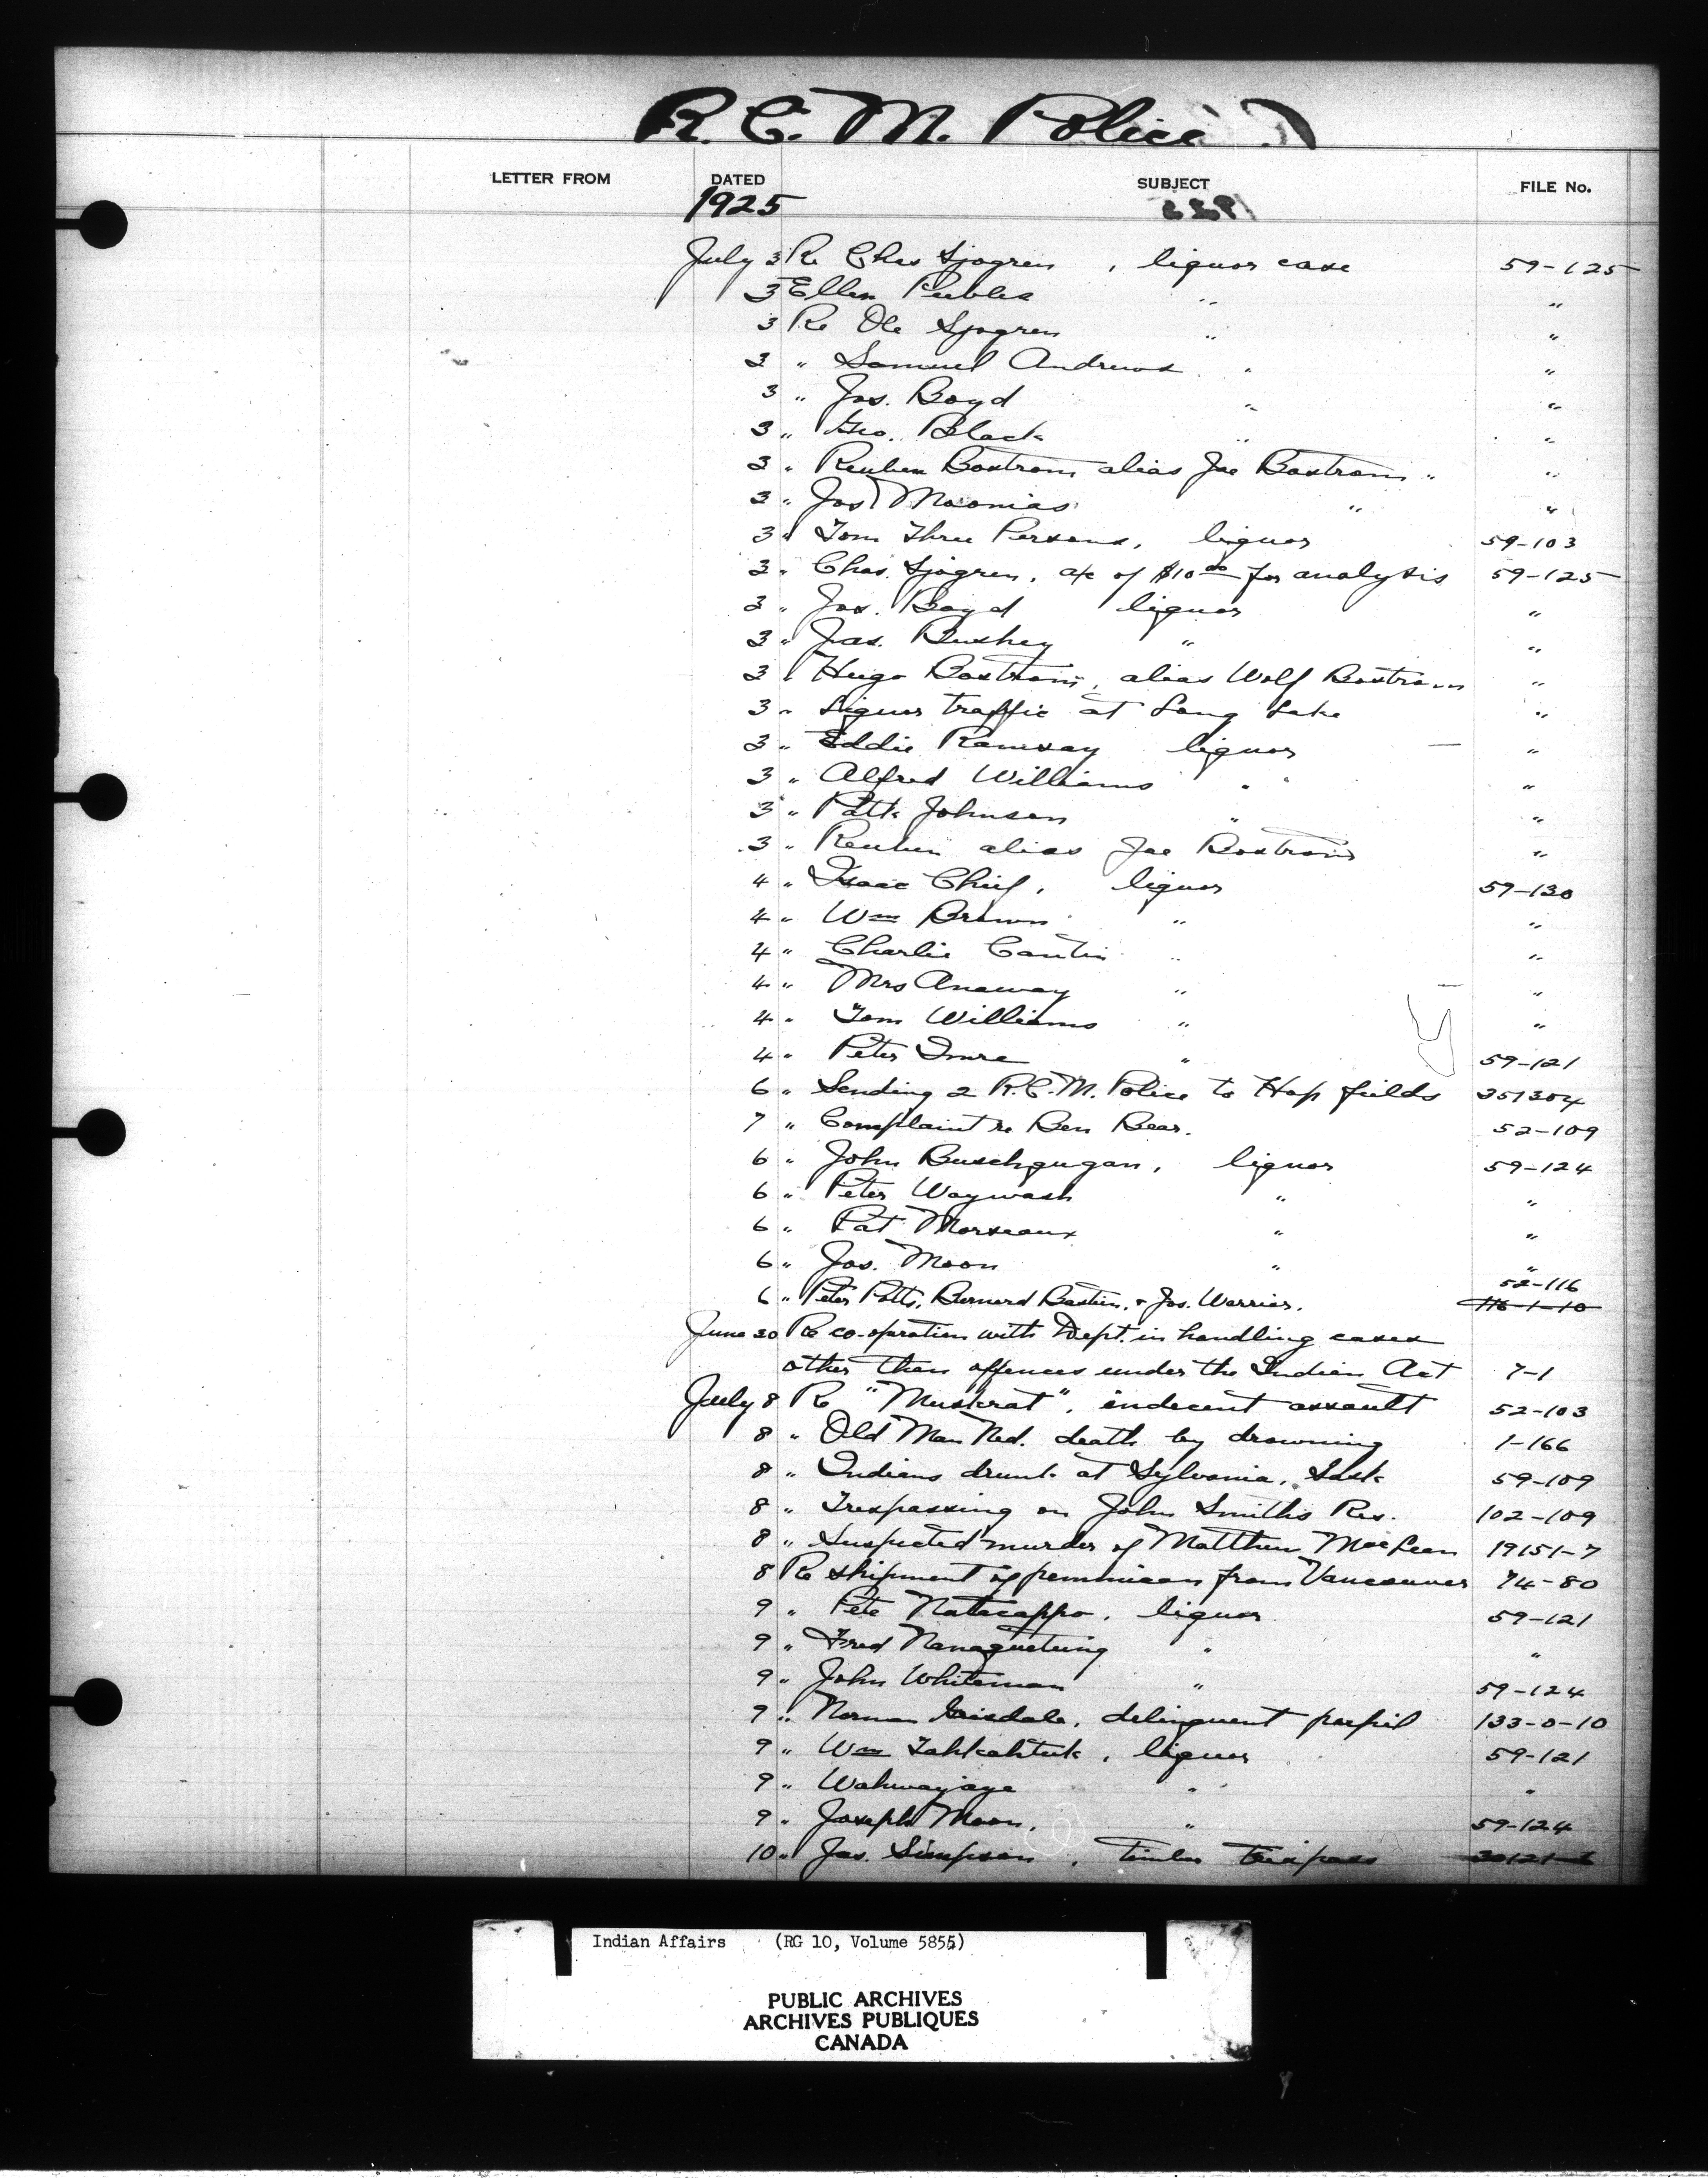 R. C. M. Police
LETTER FROM DATED SUBJECT FILE No.
1925
July 3 Re Chas Sjogren , liquor case 59-125
3 Ellen Peebles " "
3 Re Ole Sjogren " "
3 " Samuel Andrews " "
3 " Jos. Boyd " "
3 " Geo. Black " "
3 " Reuben Bostrom alias Joe Bostrom " "
3 " Jos Moonias " "
3 " Tom Three Persons, liquor 59-103
3 " Chas. Sjogren, a/c of $10.00 for analysis 59-125
3 " Jos. Boyd liquor "
3 " Jas. Bushey " "
3 " Hugo Bostrom, alias Wolf Bostrom "
3 " Liquor traffic at Long Lake "
3 " Eddie Ramsay liquor "
3 " Alfred Williams " "
3 " Patk Johnson " "
3 " Reuben alias Joe Bostrom "
4 " Isaac Chief, liquor 59-130
4 " Wm Brown " "
4 " Charlie Cantin " "
4 " Mrs Anaway " "
4 " Tom Williams " "
4 " Peter " 59-121
6 " Sending 2 R.C.M. Police to Hop fields 351304
7 " Complaint re Ben Bear. 52-109
6 " John Buschgugan, liquor 59-124
6 " Peter Waywash " "
6 " Pat Morseaux " "
6 " Jos. Moon " "
52-116
6 " Peter Potts, Bernard Bastien, & Jos. Warrior. 116-1-10
June 20 Re co-operation with Dept. in handling cases
other than offences under the Indian Act 7-1
July 8 Re "Muskrat", indecent assault 52-103
8 " Old Man Ned. death by drowning 1-166
8 " Indians drunk at Sylvania, Sask 59-109
8 " Trespassing on John Smiths Res. 102-109
8 " Suspected murder of Matthew MacLean 19151-7
8 Re shipment of pemmican from Vancouver 74-80
9 " Pete Natacappo, liquor 59-121
9 " Fred Nanaquetung " "
9 " John Whiteman " 59-124
9 " Norman Grisdale, delinquent pupil 133-0-10
9 " Wm Tahkahtuk, liquor 59-121
9 " Wahwayaye " "
9 " Joseph Moon, " 59-124
10 " Jas. Simpson, Timber trespass
Indian Affairs (RG 10, Volume 5855)
PUBLIC ARCHIVES
ARCHIVES PUBLIQUES
CANADA